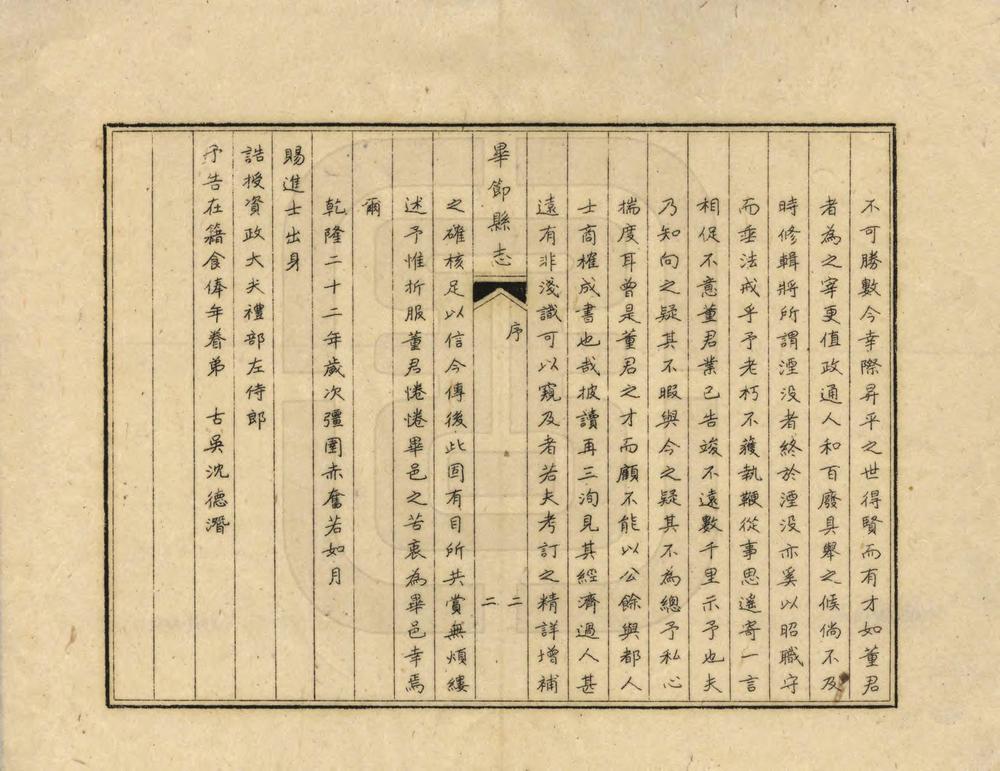 不可勝數今幸際昇平之世得賢而有才如董君
者為之宰更值政通人和百廢具舉之候倘不及
時修輯將所謂湮没者終於湮没亦奚以昭職守
而垂法戒乎予老朽不獲執鞭從事思遙寄一言
相促不意董君業已告竣不遠數千里示予也夫
乃知向之疑其不暇與今之疑其不為總予私心
揣度耳曾是董君之才而顧不能以公餘與都人
士商榷成書也哉披讀再三洵見其經濟過人甚
遠有非淺識可以窺及者若夫考訂之精詳增補
畢節縣志
序
二
二
之確核足以信今傳後此固有目所共賞無煩縷
述予惟折服董君惓惓畢邑之苦衷為畢邑幸焉
爾
乾隆二十二年歲次彊圉赤奮若如月
賜進士出身
誥授資政大夫禮部左侍郎
予告在籍食俸年眷弟 古吳沈德潛